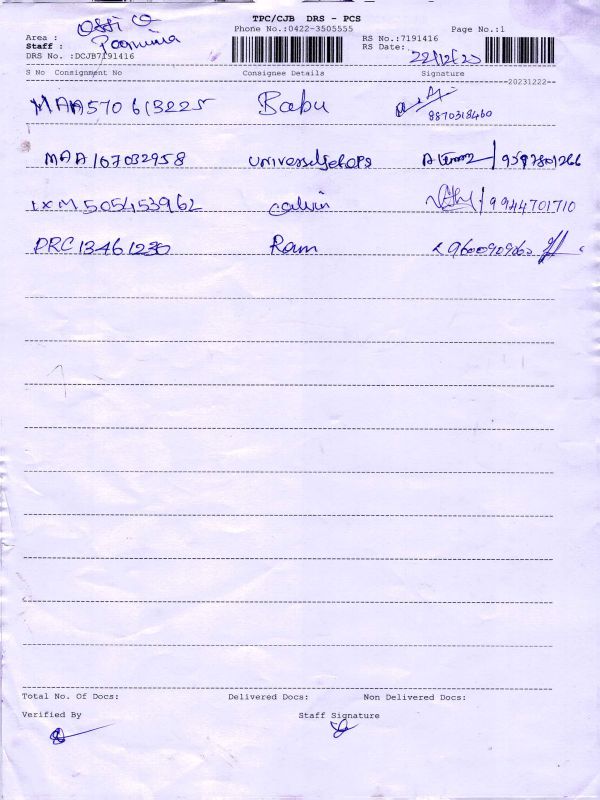 TPC/CJB DRS - PCS
Phone No.:0422-3505555 Page No.:1
Area : Office
Staff : Poornima
RS No.:7191416
RS Date: 22/12/23
DRS No. :DCJB7191416
S No Consignment No Consignee Details Signature
--20231222--
MAA570613225 Babu
8870318460
MAA167032958 19597801266
IXM505453962 Calvin 9944701710
PRC13461230 Ram 9600909060
Total No. Of Docs: Delivered Docs: Non Delivered Docs:
Verified By Staff Signature